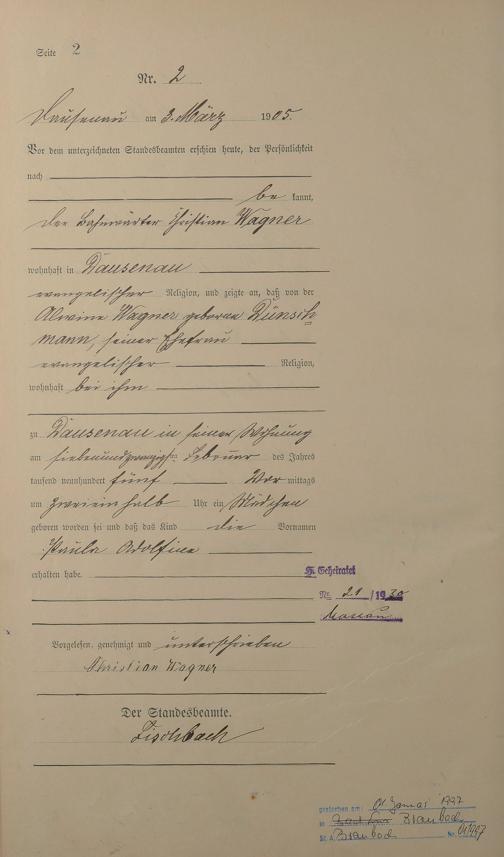 Seite 2
Nr. 2
Dausenau am 3. März 1905.
Vor dem unterzeichneten Standesbeamten erschien heute, der Persönlichkeit
nach
be kannt,
der Bahnwärter Christian Wagner
wohnhaft in Dausenau
evangelischer Religion, und zeigte an, daß von der
Alwine Wagner geborne Dünsch
mann, seiner Ehefrau
evangelischer Religion,
wohnhaft bei ihm
zu Dausenau in seiner Wohnung
am siebenundzwanzigsten Februar des Jahres
tausend neunhundert fünf Vor mittags
um zweieinhalb Uhr ein Mädchen
geboren worden sei und daß das Kind die Vornamen
Paula Adolfine
erhalten habe.
Geheiratet
Nr. 21/1930
Nassau
Vorgelesen, genehmigt und unterschrieben
Christian Wagner
Der Standesbeamte.
Fischbach
gestorben am: 01 Januar 1997
in Braubach
St.A. Braubach Nr. 01/1997